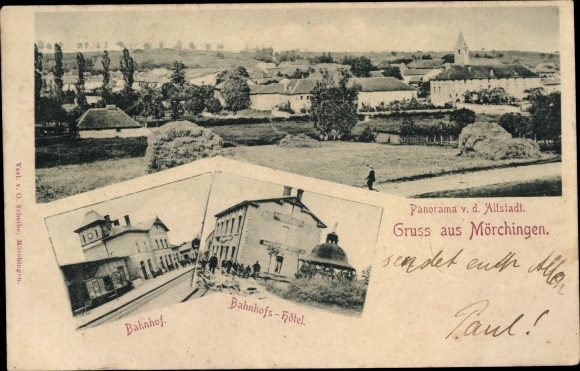 Panorama v. d. Altstadt.
Gruss aus Mörchingen.
sendet euch Allen
Paul!
Bahnhof.
Bahnhofs-Hôtel.
Verl. v. O. Scheibe, Mörchingen.